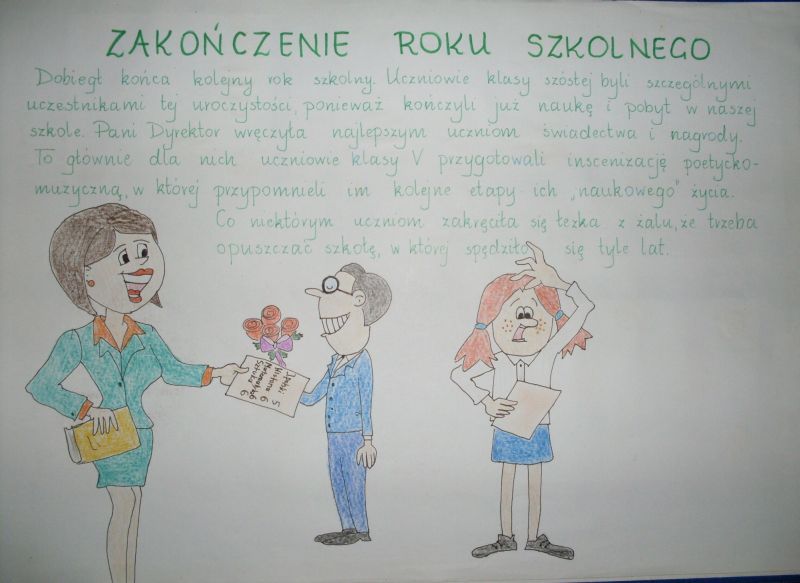 ZAKOŃCZENIE ROKU SZKOLNEGO
Dobiegł końca kolejny rok szkolny. Uczniowie klasy szóstej byli szczególnymi
uczestnikami tej uroczystości, ponieważ kończyli już naukę i pobyt w naszej
szkole. Pani Dyrektor wręczyła najlepszym uczniom świadectwa i nagrody.
To głównie dla nich uczniowie klasy V przygotowali inscenizację poetycko-
muzyczną, w której przypomnieli im kolejne etapy ich „naukowego" życia.
Co niektórym uczniom zakręciła się łezka z żalu, że trzeba
opuszczać szkołę, w której spędziło się tyle lat.
J.polski 5
Historia 6
Matematyka 6
Sztuka 6